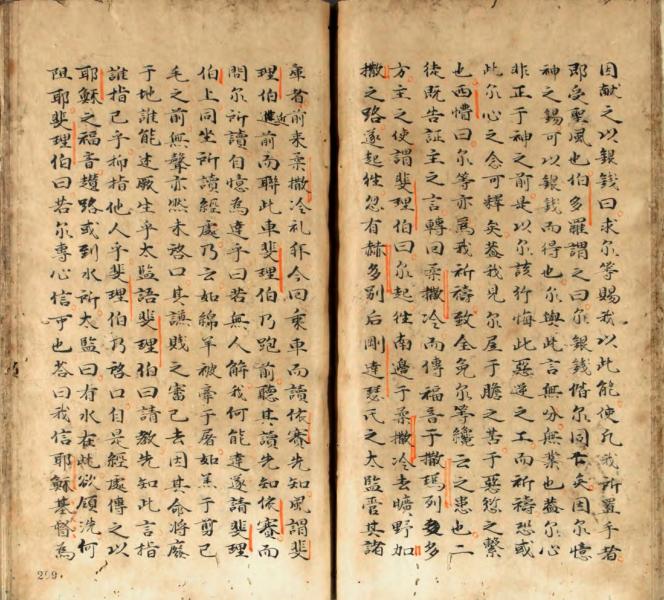 因献之以銀錢曰求尔等賜我以此能使凡我所置手者
即受聖風也伯多羅謂之曰尔銀錢偕尔同亡矣因尔憶
神之錫可以銀錢而得也尔與此言無分無業也蓋尔心
非正于神之前是以尔該行悔此惡逆之工而祈禱恐或
此尔心之念可釋矣蓋我見尔屋于膽之苦于惡愆之繫
也西懵曰尔等亦為我祈禱致全免尔等纔云之患也二
徒既告証主之言轉回柔撒冷而傳福音于撒瑪列多
方主之使謂斐理伯曰尔起往南邊于柔撒冷去曠野加
撒之路遂起往忽有赫多別后剛達瑟氏之太監管其諸
庫者前來柔撒冷礼拜今回乘車而讀依賽先知風謂斐
理伯進近前而聯此車斐理伯乃跑前聽其讀先知依賽而
問尔所讀自憶為達乎曰若無人解我何能達遂請斐理
伯上同坐所讀經處乃云如綿羊被牽于屠如羔于剪己
毛之前無聲亦然未啓口其謙賤之審已去因其命將廢
于地誰能述厥生乎太監語斐理伯曰請教先知此言指
誰指己乎抑指他人乎斐理伯乃啓口自是經處傳之以
耶穌之福音趲路或到水所太監曰有水在此欲頋洗何
阻耶斐理伯曰若尔專心信可也荅曰我信耶穌基督為
299